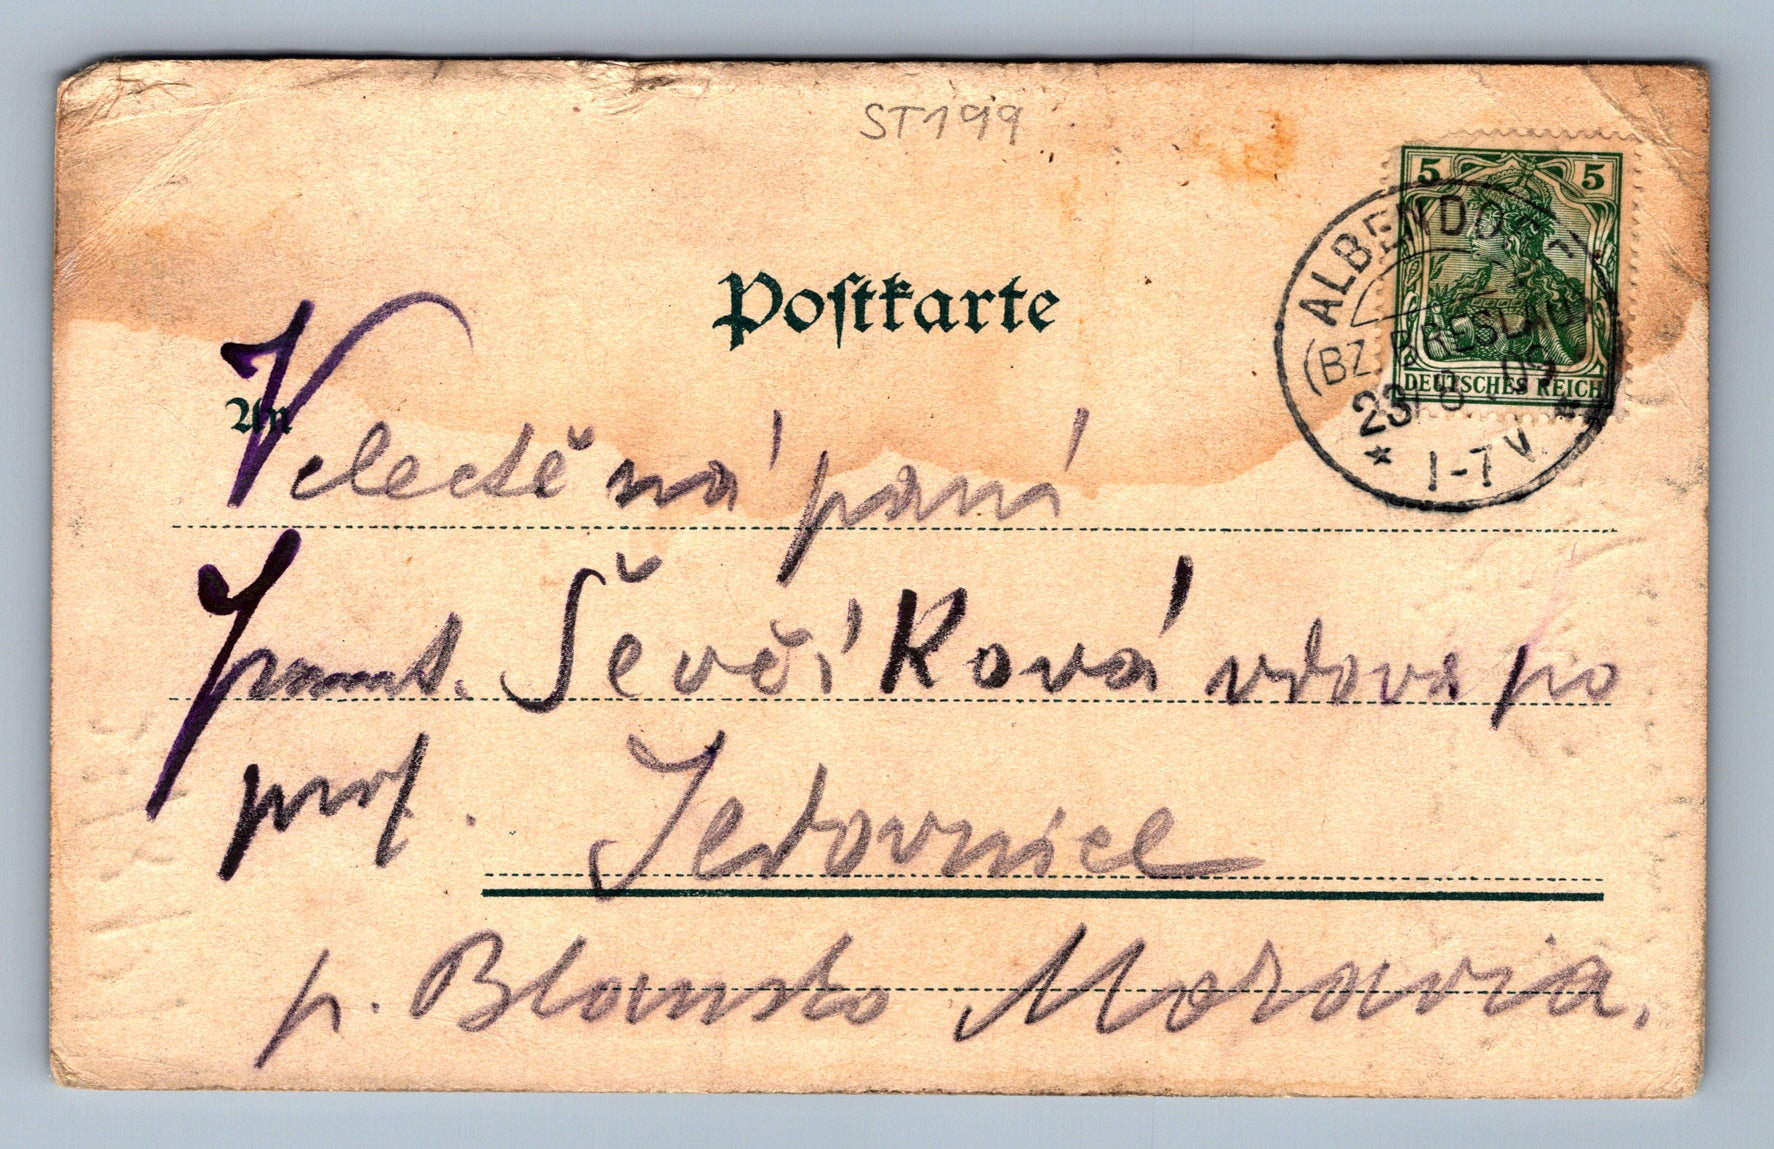 ST199
Postkarte
5 5
DEUTSCHES REICH
ALBENDORF
(BZ. BRESLAU)
23 8 09
* 1-7 V. *
An
Velectěná paní
Ševčíková vdova po
prof. Jedovnice
p. Blansko Moravia.